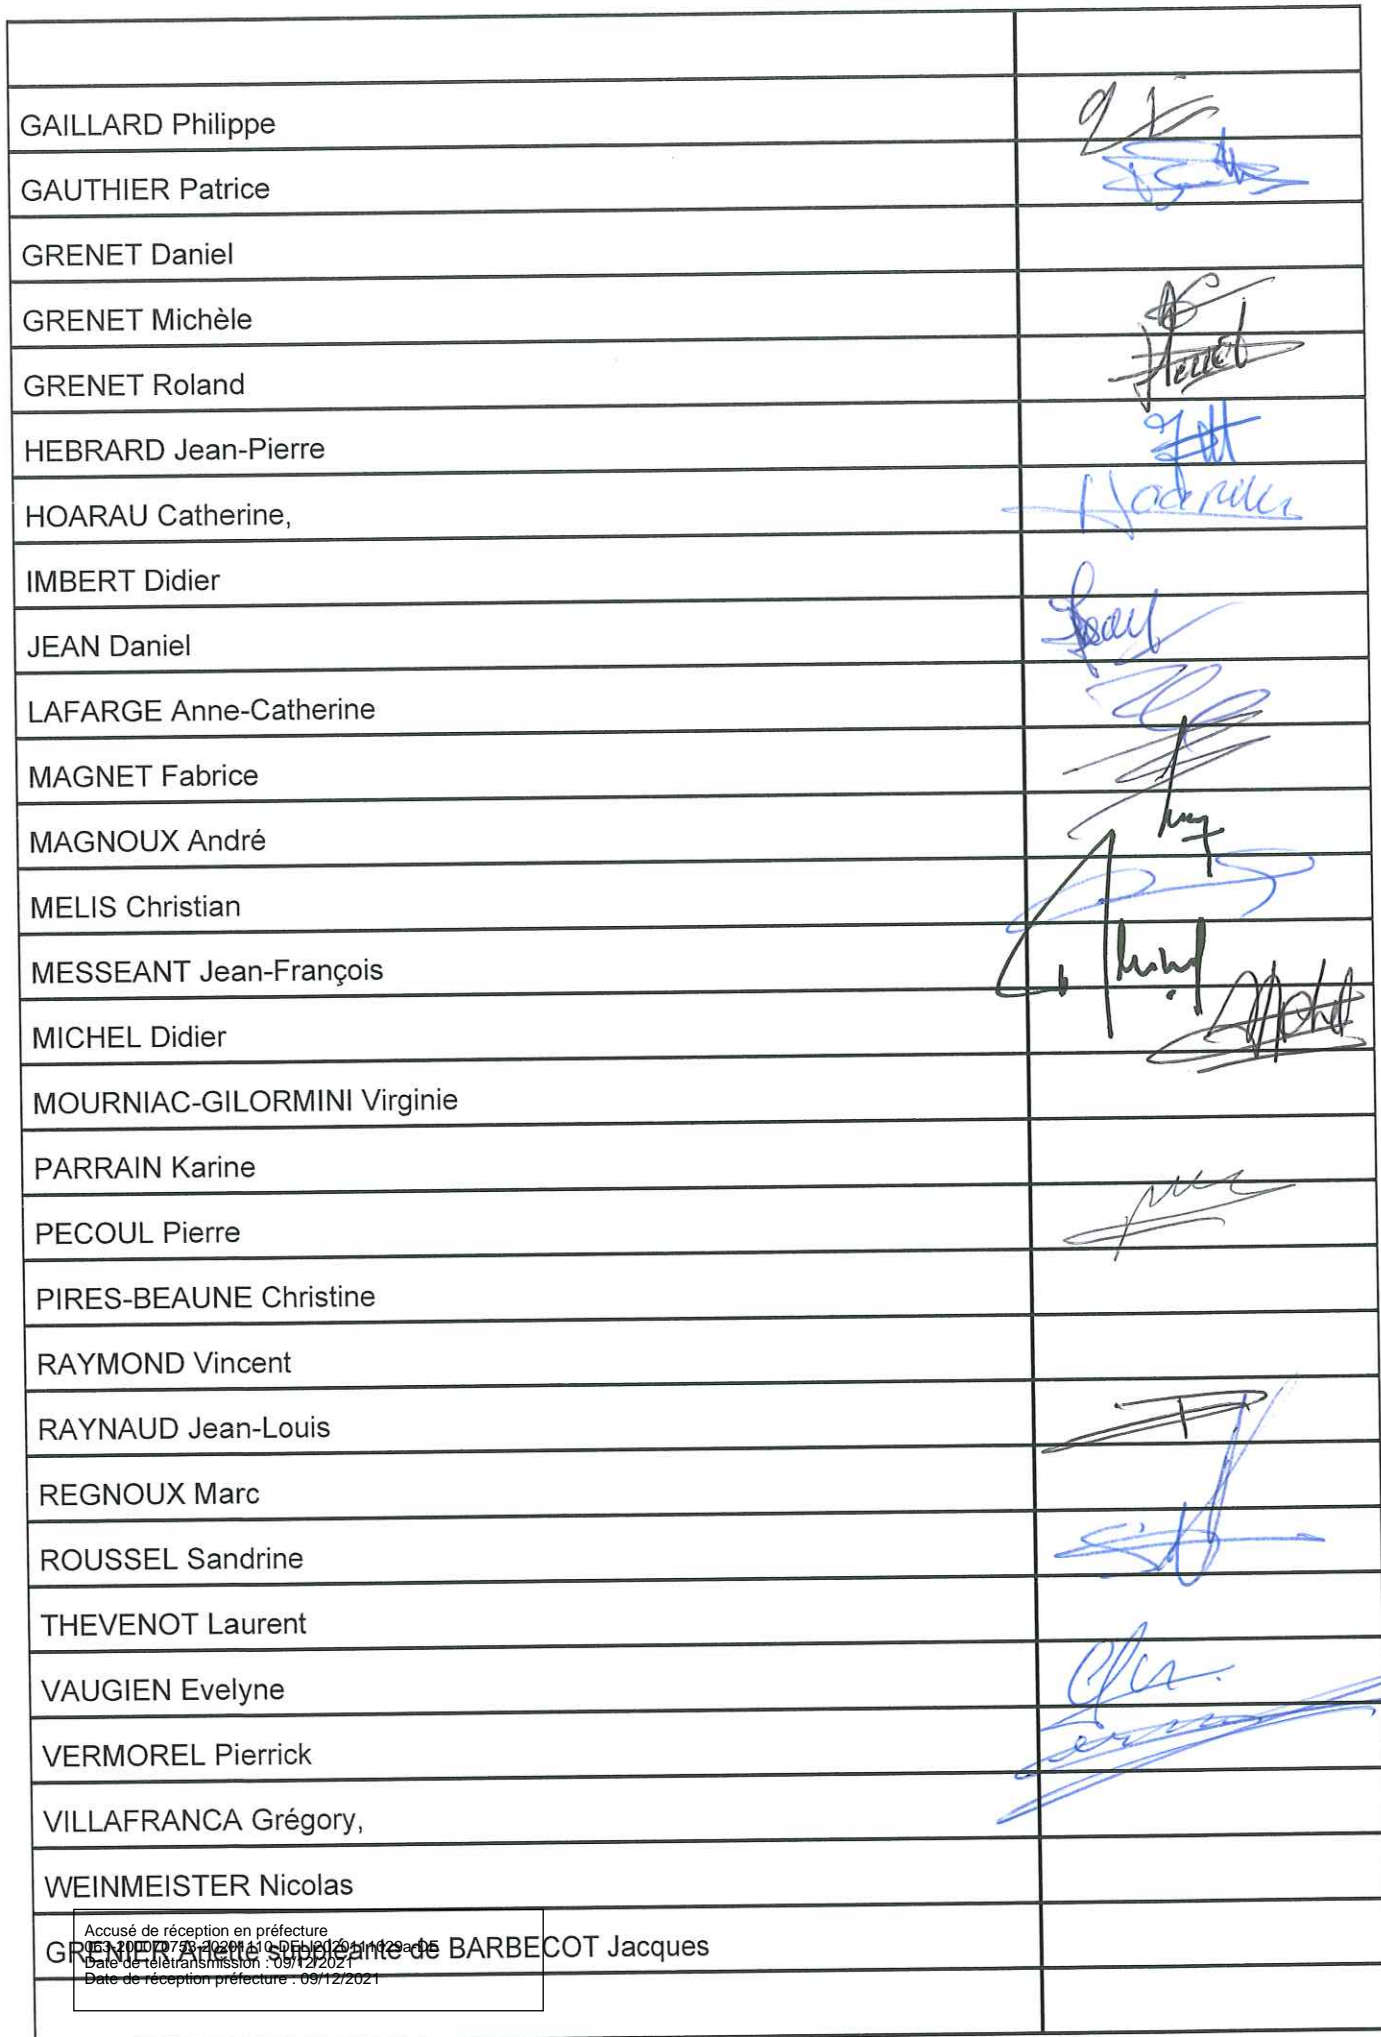 GAILLARD Philippe
GAUTHIER Patrice
GRENET Daniel
GRENET Michèle
GRENET Roland
HEBRARD Jean-Pierre
HOARAU Catherine,
IMBERT Didier
JEAN Daniel
LAFARGE Anne-Catherine
MAGNET Fabrice
MAGNOUX André
MELIS Christian
MESSEANT Jean-François
MICHEL Didier
MOURNIAC-GILORMINI Virginie
PARRAIN Karine
PECOUL Pierre
PIRES-BEAUNE Christine
RAYMOND Vincent
RAYNAUD Jean-Louis
REGNOUX Marc
ROUSSEL Sandrine
THEVENOT Laurent
VAUGIEN Evelyne
VERMOREL Pierrick
VILLAFRANCA Grégory,
WEINMEISTER Nicolas
Accusé de réception en préfecture
063-200070753-20201110-DELI2020111029a-DE
GRENIER Anette suppléante de BARBECOT Jacques
Date de télétransmission : 09/12/2021
Date de réception préfecture : 09/12/2021